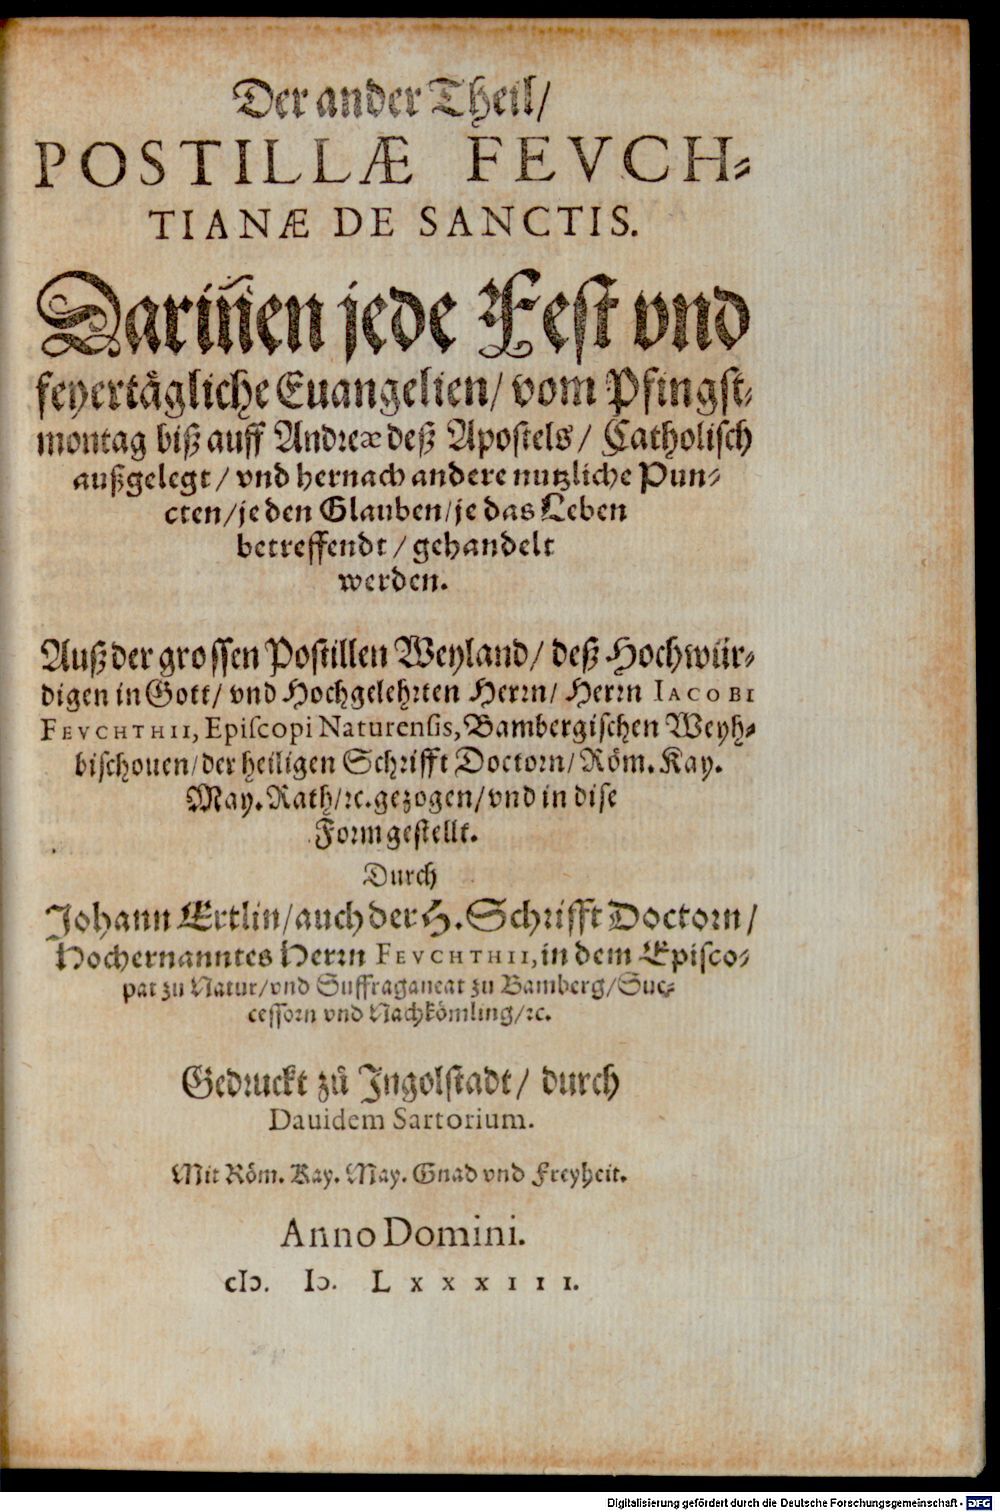 Der ander Theil/
POSTILLÆ FEVCH⸗
TIANÆ DE SANCTIS.
Dariñen jede Fest vnd
feyertägliche Euangelien/ vom Pfingst⸗
montag biß auff Andreæ deß Apostels/ Catholisch
außgelegt/ vnd hernach andere nutzliche Pun⸗
cten/ je den Glauben/ je das Leben
betreffendt/ gehandelt
werden.
Auß der grossen Postillen Weyland/ deß Hochwür⸗
digen in Gott/ vnd Hochgelehrten Herrn/ Herrn IACOBI
FEVCHTHII, Episcopi Naturensis, Bambergischen Weyh⸗
bischouen/ der heiligen Schrifft Doctorn/ Röm. Kay.
May. Rath/ ꝛc. gezogen/ vnd in dise
Form gestellt.
Durch
Johann Ertlin/ auch der H. Schrifft Doctorn/
Hochernanntes Herrn FEVCHTHII, in dem Episco⸗
pat zu Natur/ vnd Suffraganeat zu Bamberg/ Suc⸗
cessorn vnd Nachkömling/ ꝛc.
Gedruckt zů Ingolstadt/ durch
Dauidem Sartorium.
Mit Röm. Kay. May. Gnad vnd Freyheit.
Anno Domini.
cIɔ. Iɔ. LXXXIII.
Digitalisierung gefördert durch die Deutsche Forschungsgemeinschaft - DFG